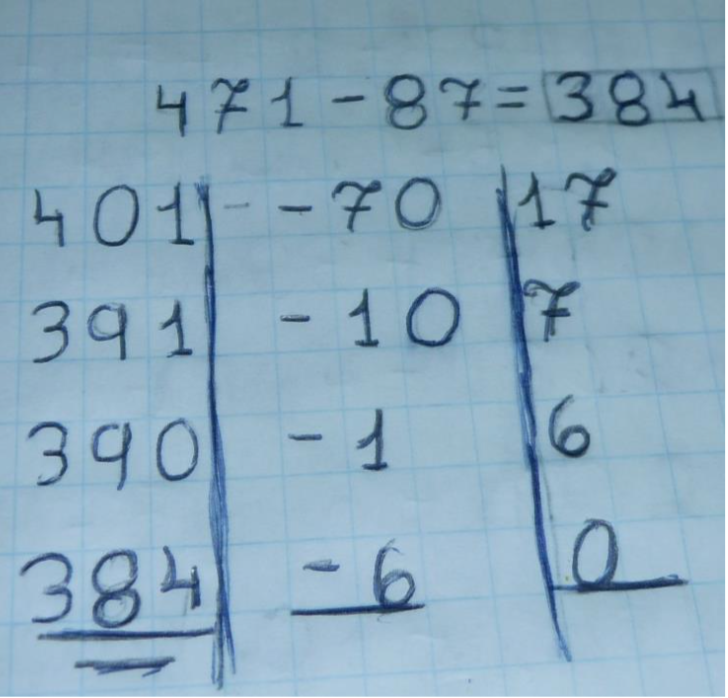 471 - 87 = 384
401 - -70 17
391 -10 7
390 -1 6
384 -6 0